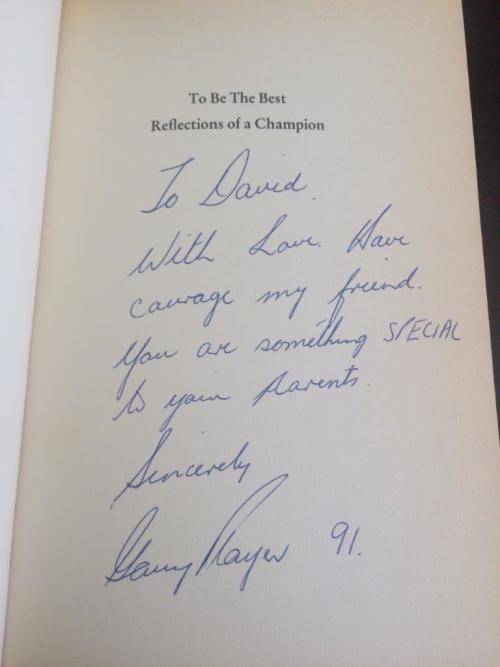 To Be The Best
Reflections of a Champion
To David.
With Love. Have
courage my friend.
You are something SPECIAL
to your Parents.
Sincerely
Gary Player 91.